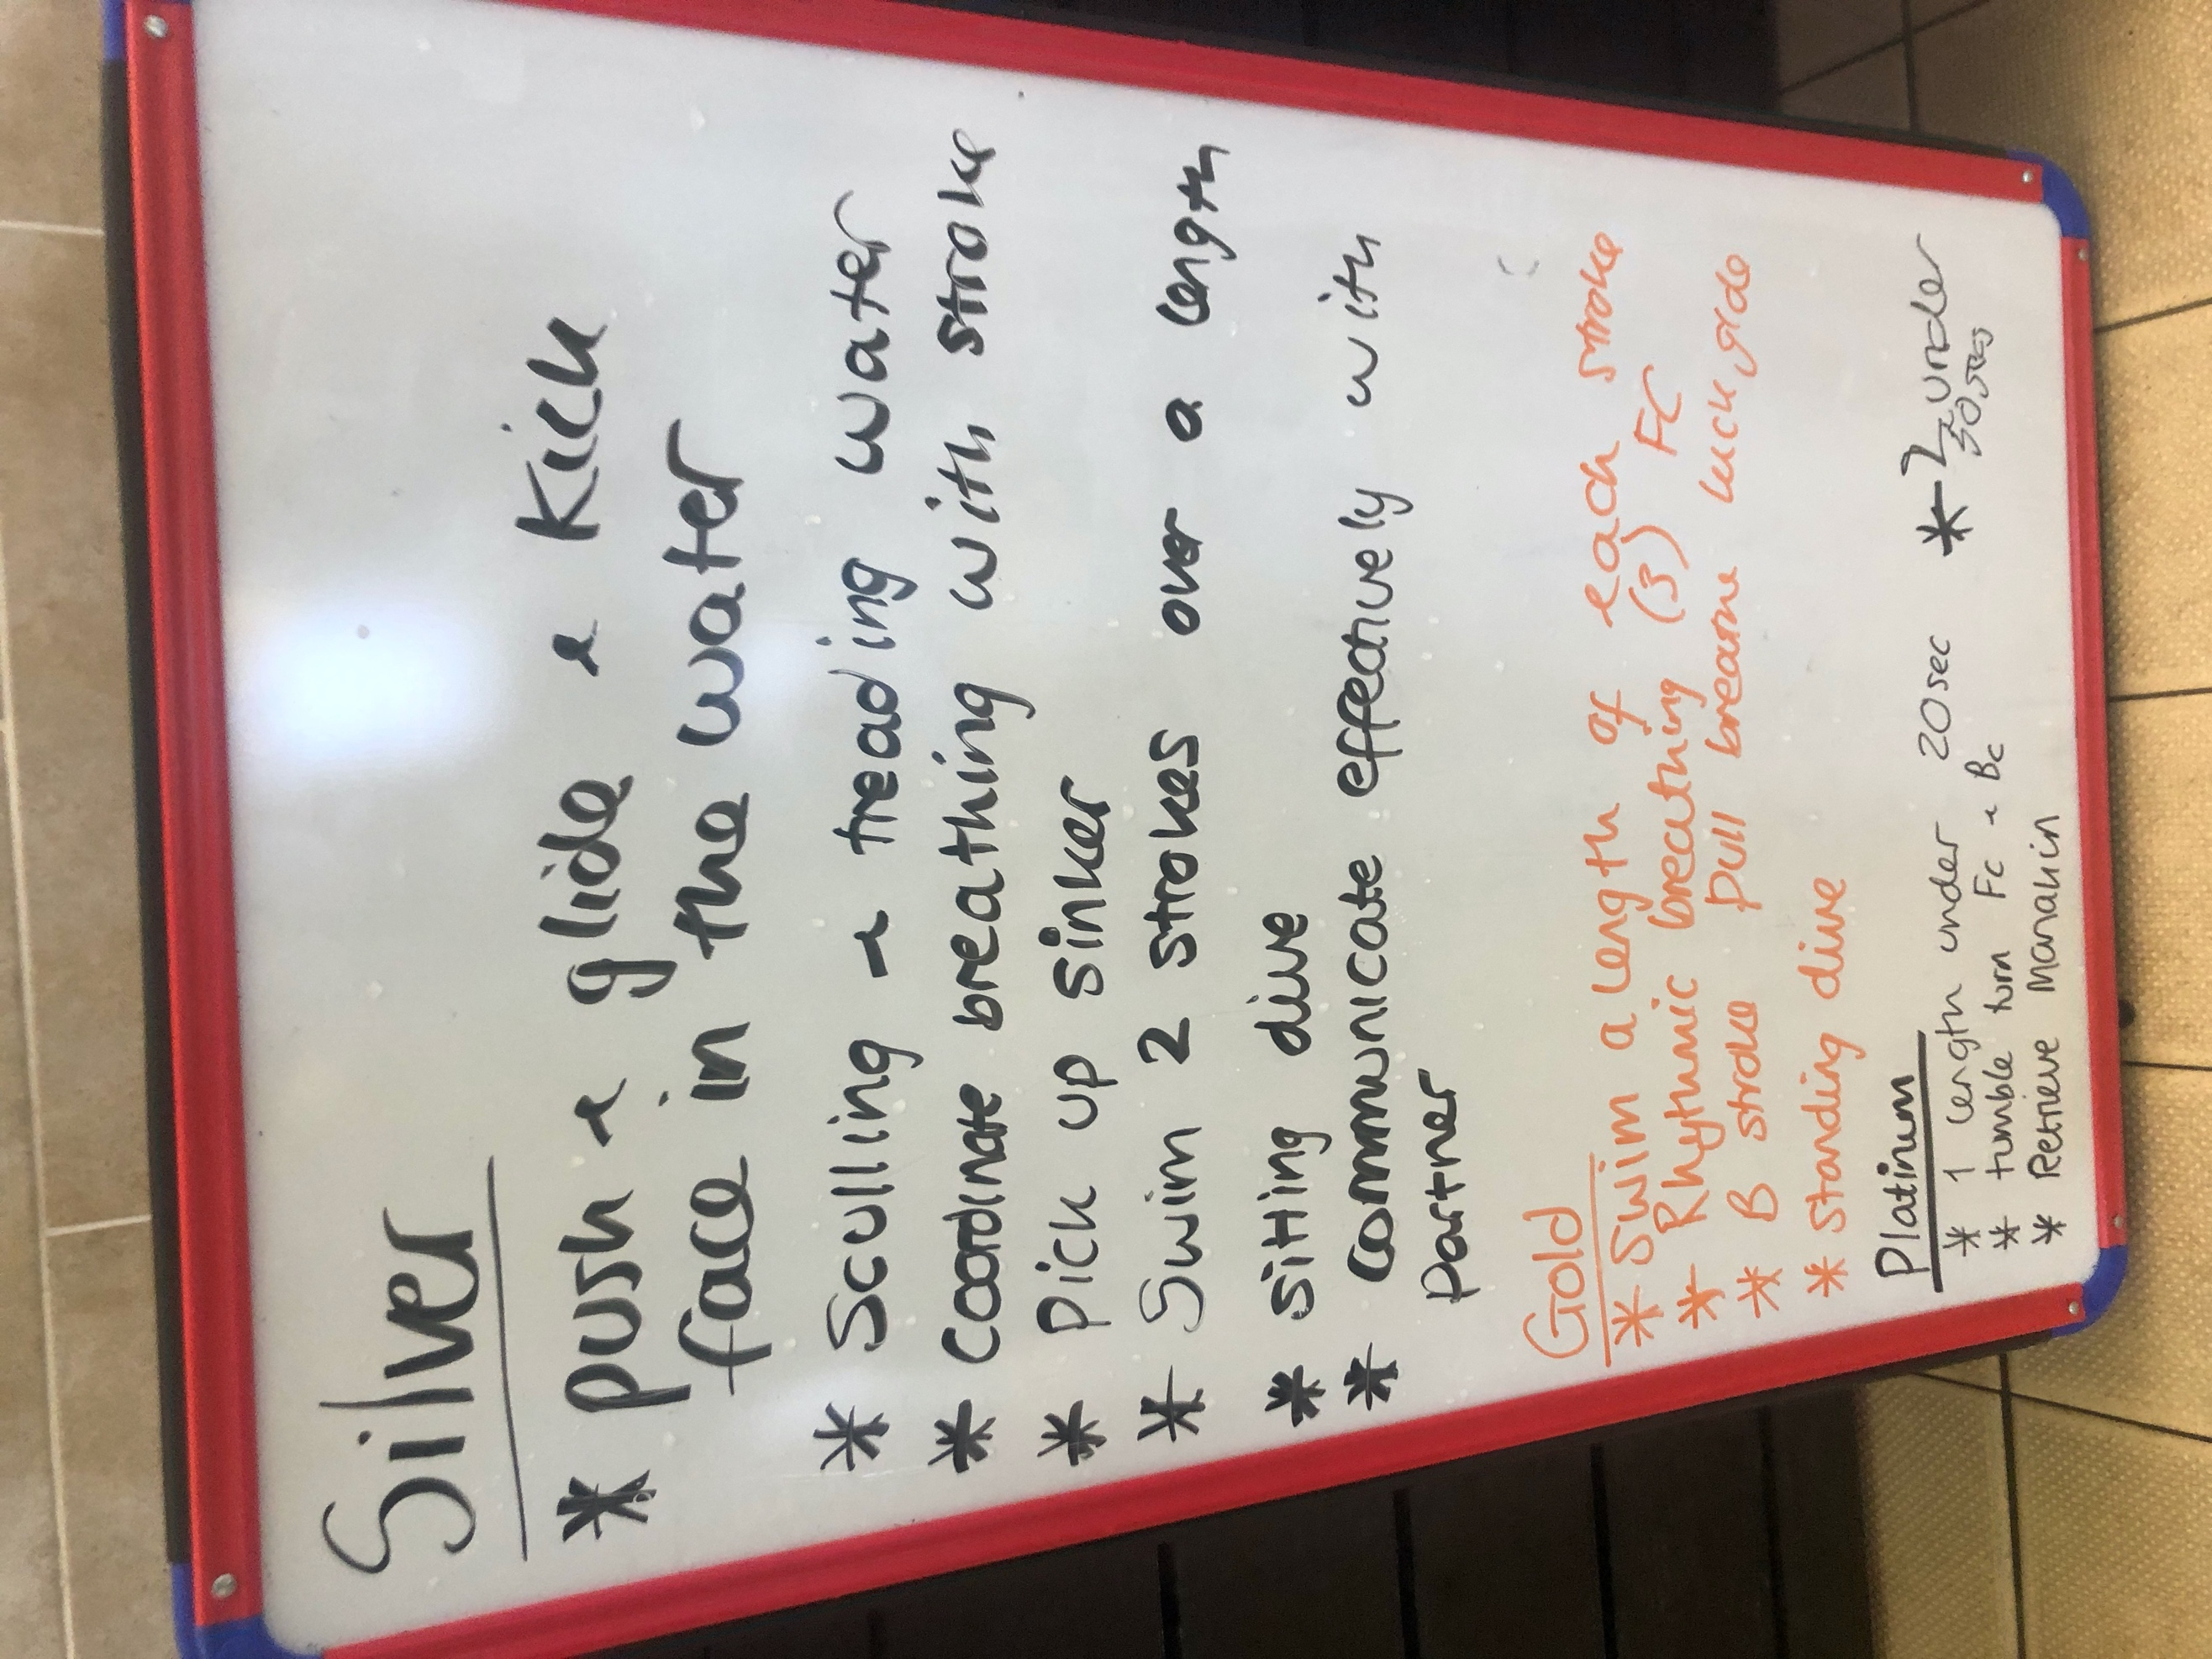 Silver
* push & glide & kick
face in the water
* Sculling & treading water
* Coordinate breathing with stroke
* Pick up sinker
* Swim 2 strokes over a length
* Sitting dive
* Communicate effectively with
partner
Gold
* Swim a length of each stroke
* Rhythmic breathing (3) FC
* B stroke pull breathe kick glide
* Standing dive
Platinum
* 1 length under 20sec
* tumble turn Fc & Bc
* Retrieve Manakin
* 2 under
50secs